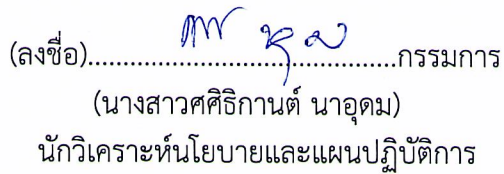 (ลงชื่อ)........................................กรรมการ
(นางสาวศศิธิกานต์ นาอุดม)
นักวิเคราะห์นโยบายและแผนปฏิบัติการ